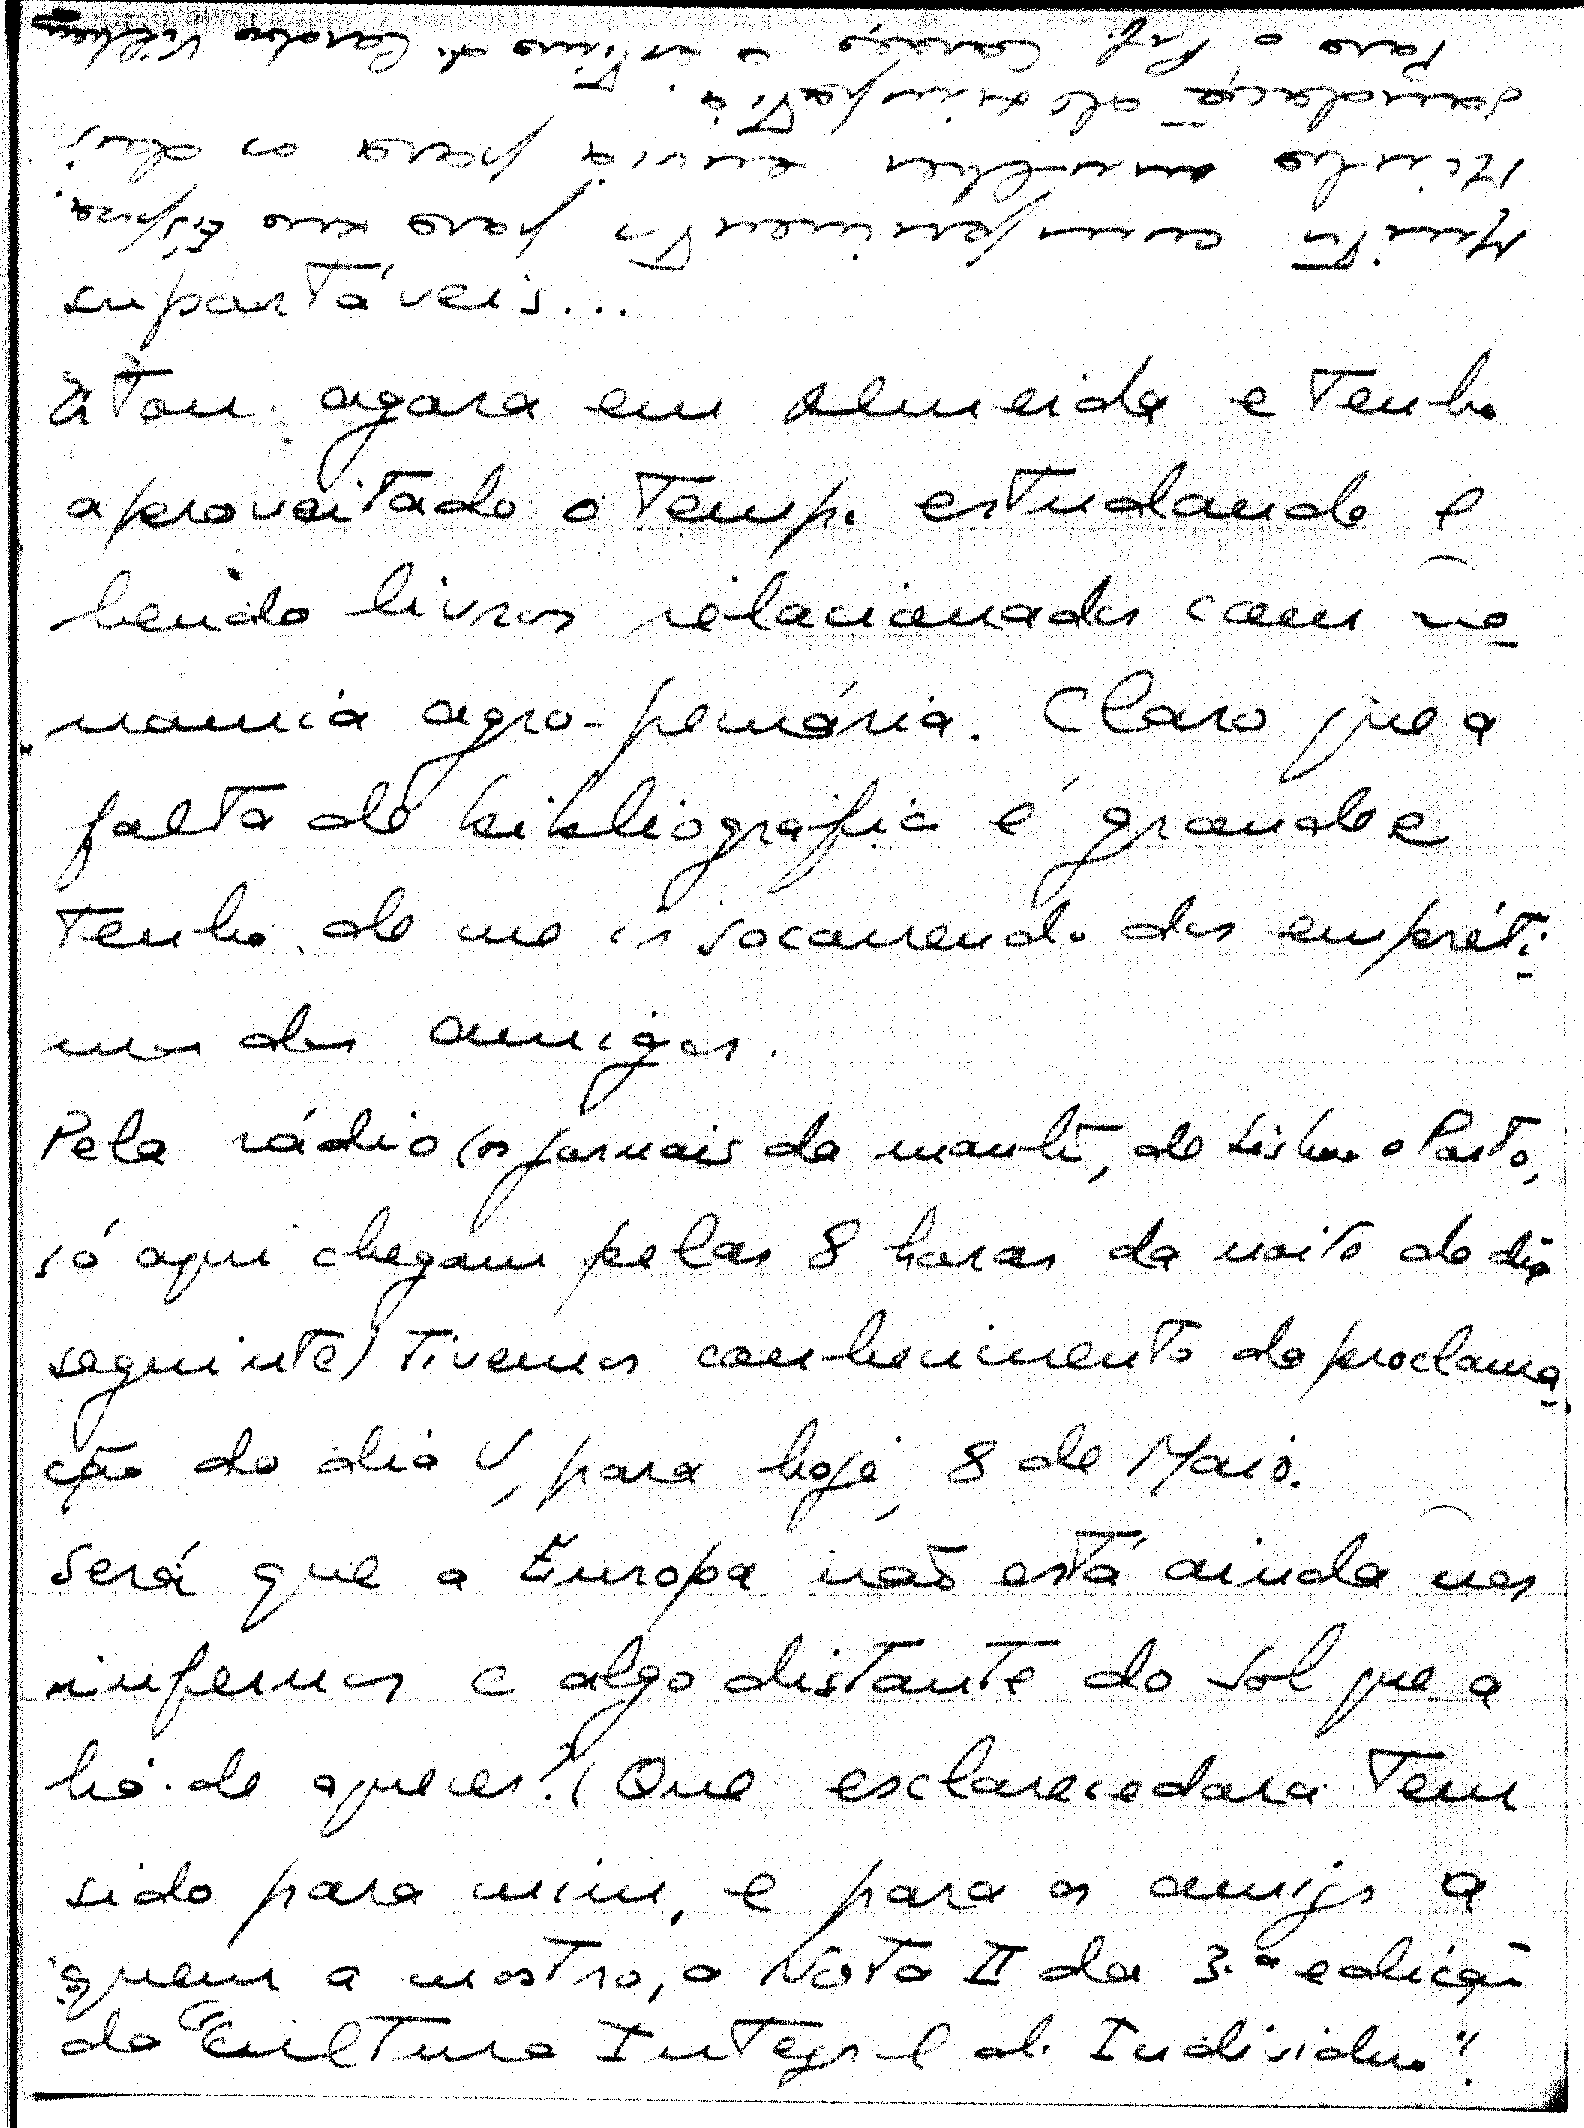 Muitos cumprimentos para sua Esposa.
Minha mulher envia para os dois
saudações de simpatia.
Para o Prof. Caraça a estima do
suportáveis...
Estou agora em Almeida e tenho
aproveitado o tempo estudando e
lendo livros relacionados com eco
nomia agro-pecuária. Claro que a
falta de bibliografia é grande e
tenho de me ir socorrendo dos emprésti
mos dos amigos.
Pela rádio (os jornais da manhã, de Lisboa e Porto,
só aqui chegam pelas 8 horas da noite do dia
seguinte) tivemos conhecimento da proclama
ção do dia V, para hoje, 8 de Maio.
Será que a Europa não está ainda nos
infernos e algo distante do Sol que a
há-de aquecer? (Que esclarecedora tem
sido para mim, e para os amigos a
quem a mostro, a Nota II da 3.ª edição
da "Cultura Integral do Indivíduo".